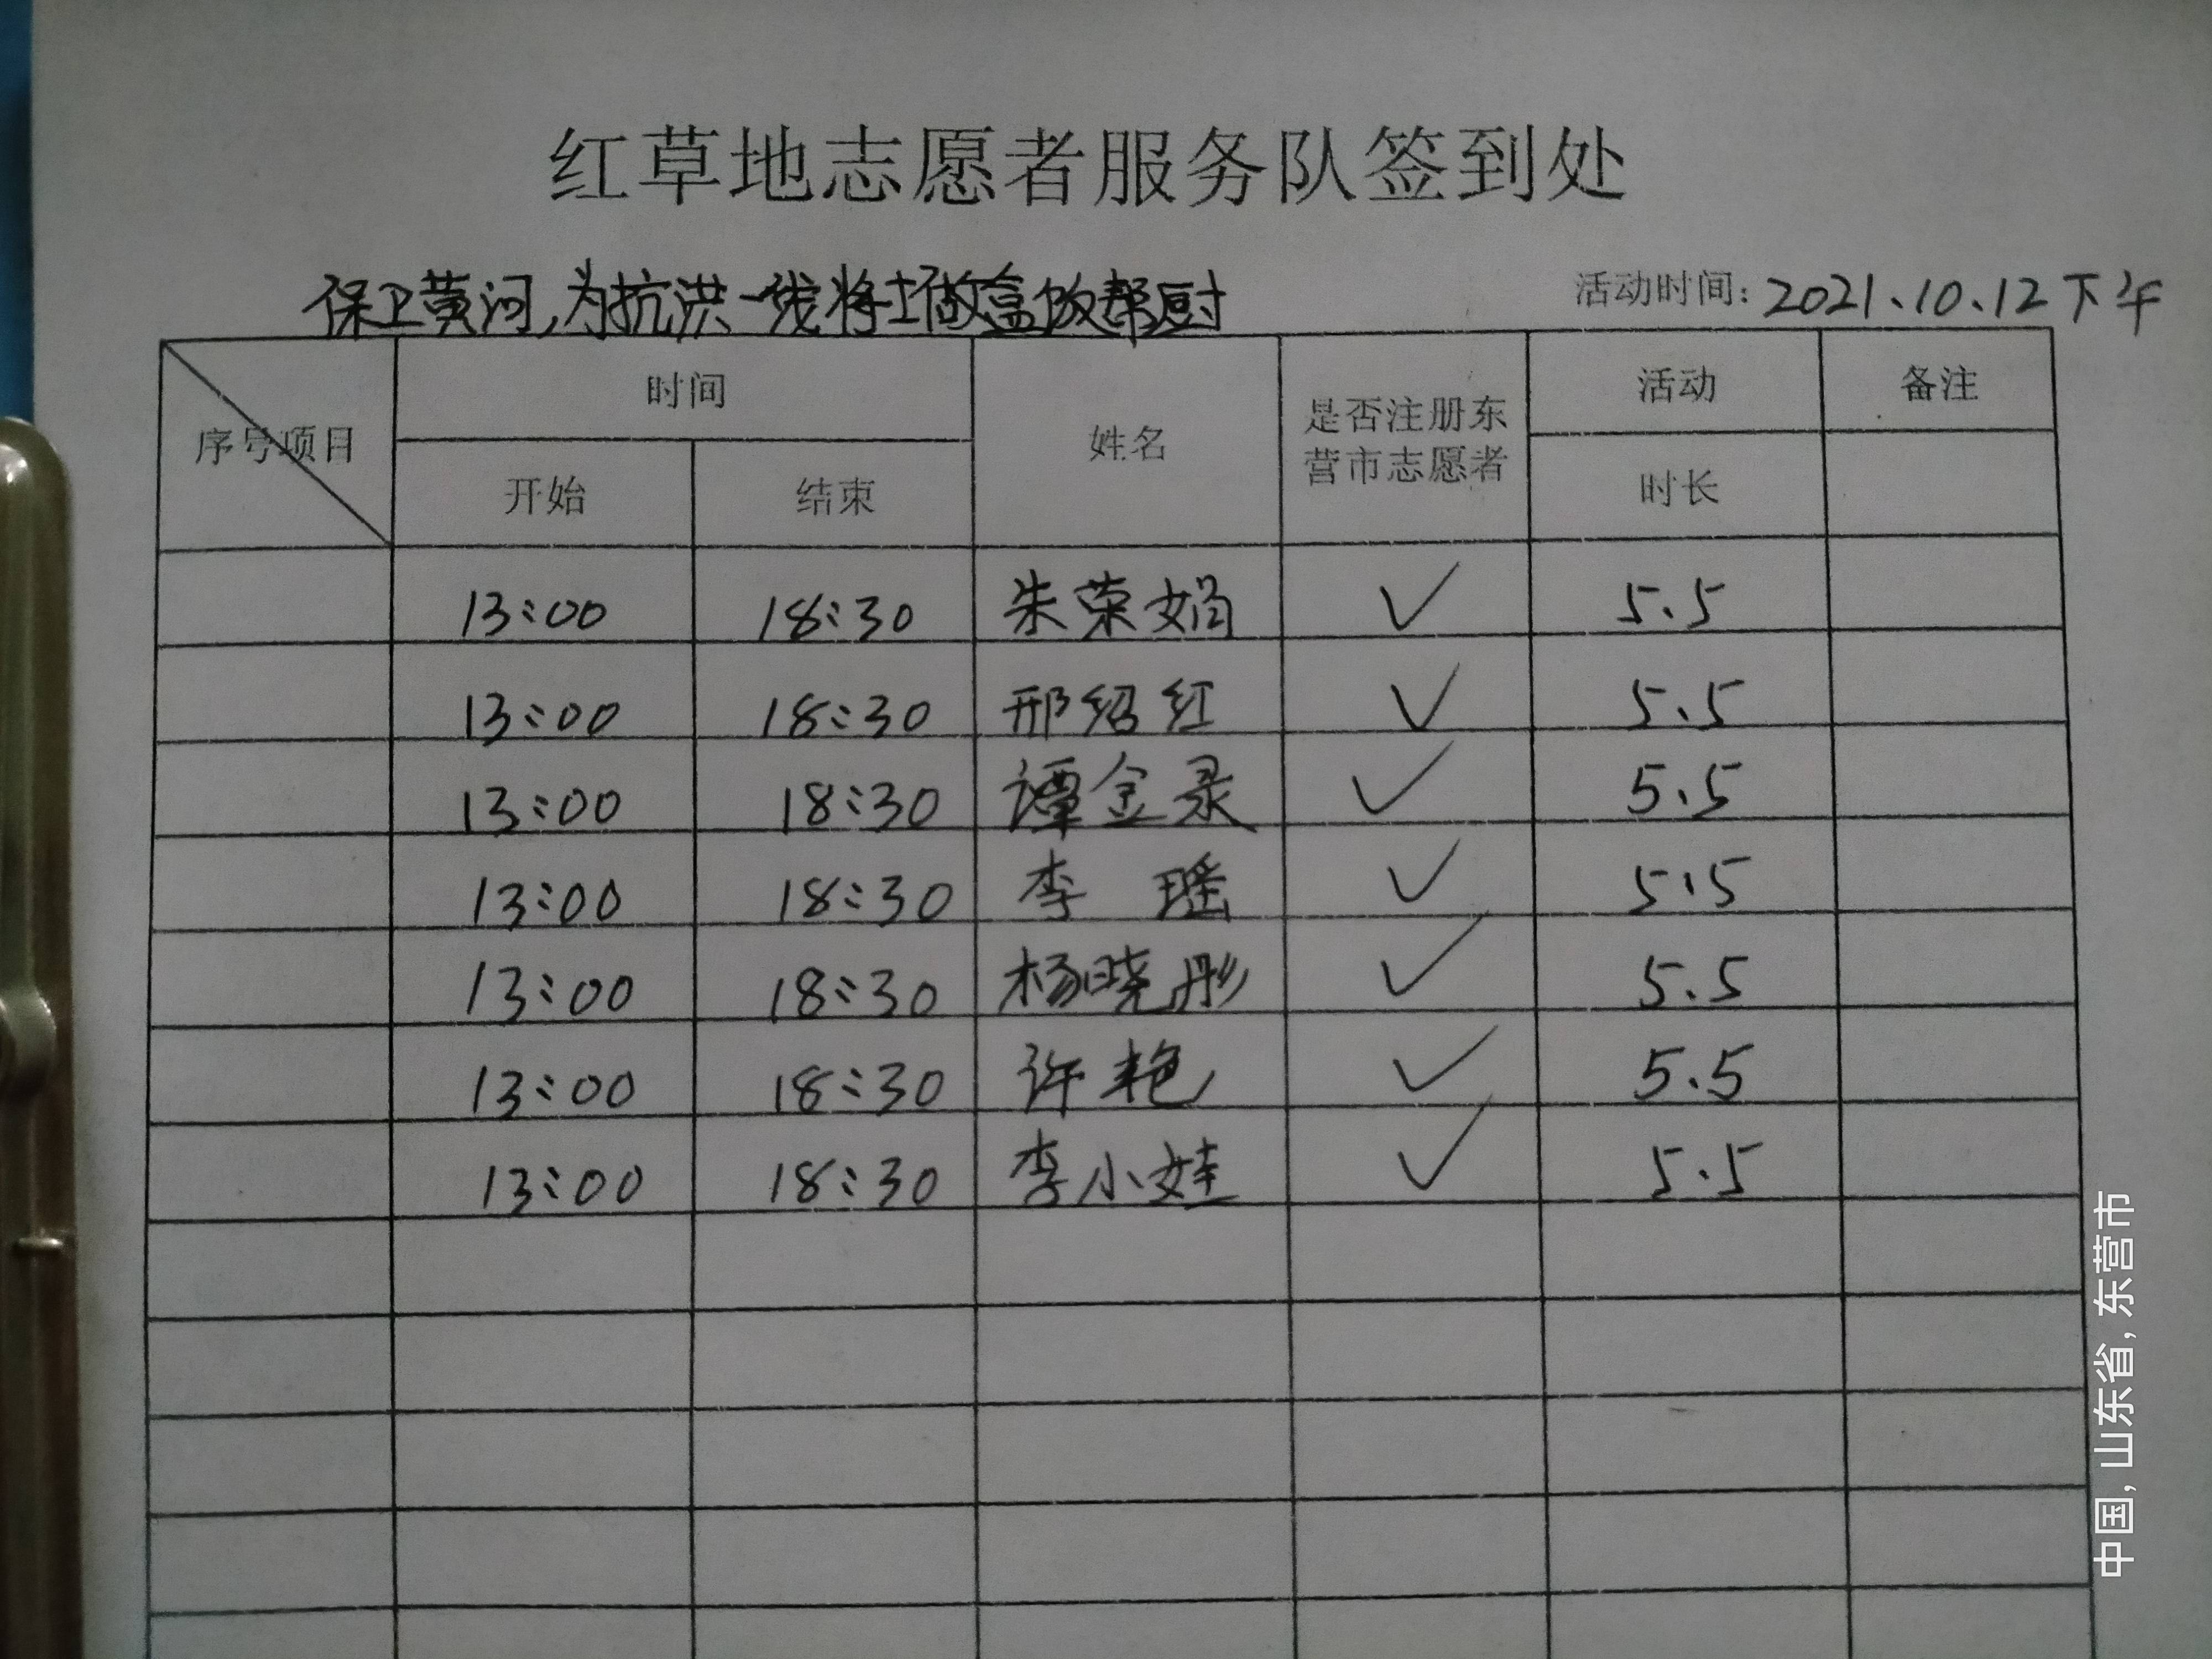 红草地志愿者服务队签到处
保卫黄河,为抗洪一线将士做盒饭帮厨 活动时间: 2021.10.12下午
序号项目 时间 姓名 是否注册东营市志愿者 活动 备注
开始 结束 时长
13:00 18:30 朱荣娟 ✓ 5.5
13:00 18:30 邢绍红 ✓ 5.5
13:00 18:30 谭金录 ✓ 5.5
13:00 18:30 李 瑶 ✓ 5.5
13:00 18:30 杨晓彤 ✓ 5.5
13:00 18:30 许艳 ✓ 5.5
13:00 18:30 李小娃 ✓ 5.5
中国, 山东省, 东营市